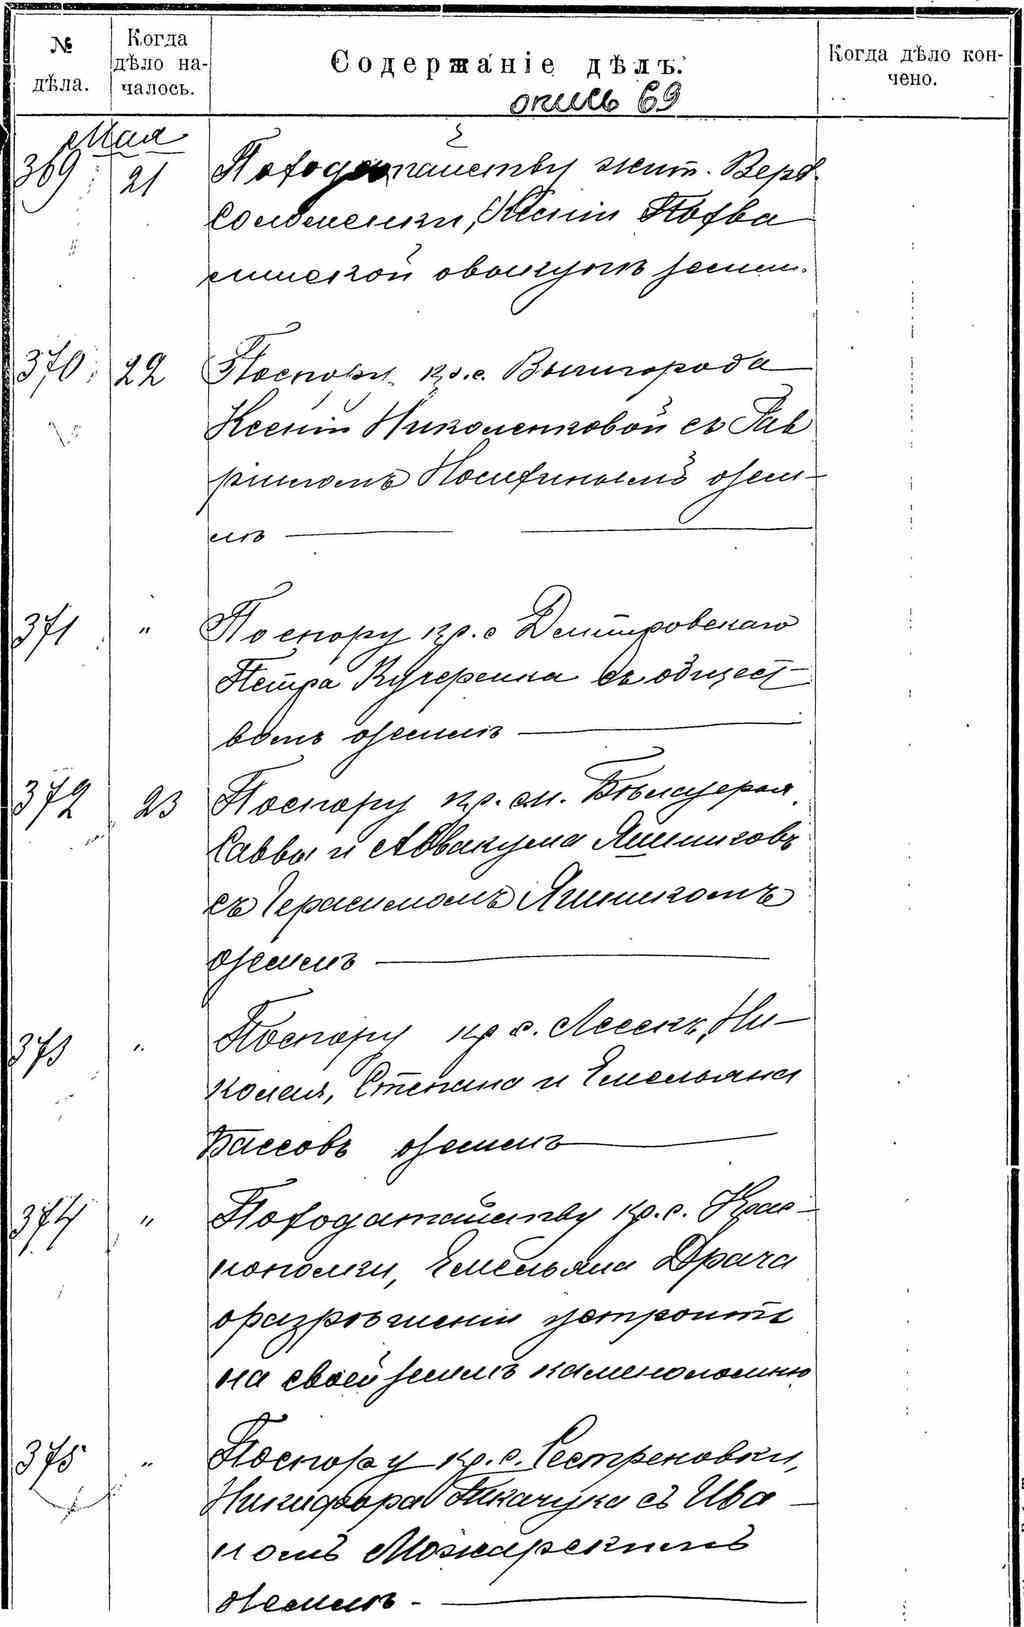 № дѣла.
Когда дѣло на-
чалось.
Содержаніе дѣлъ.
Когда дѣло кон-
чено.
опись 69
Мая
369 21 По ходатайству жит. Верх.
Соломенки, Ксеніи
о выкупѣ земли.
370 22 По спору кр. с. Вышгорода
Ксеніи Николенковой съ Гав
ріиломъ о зем-
лѣ
371 " По спору кр. с Дмитровскаго
Петра Кучеренка съ общест-
вомъ о землѣ
372 23 По спору кр. м. Бѣлозерья
Саввы и Аввакума Яшниковъ
съ Герасимомъ Яшникомъ
о землѣ
373 " По спору кр. с. Лесекъ, Ни-
колая, Степана и Емельяна
Бассовъ о землѣ
374 " По ходатайству кр. с. Крас-
нополки, Емельяна Драча
о разрѣшеніи устроить
на своей землѣ каменоломню
375 " По спору кр. с. Сестреновки,
Никифора Ткачука съ Ива-
номъ Можарскимъ
о землѣ